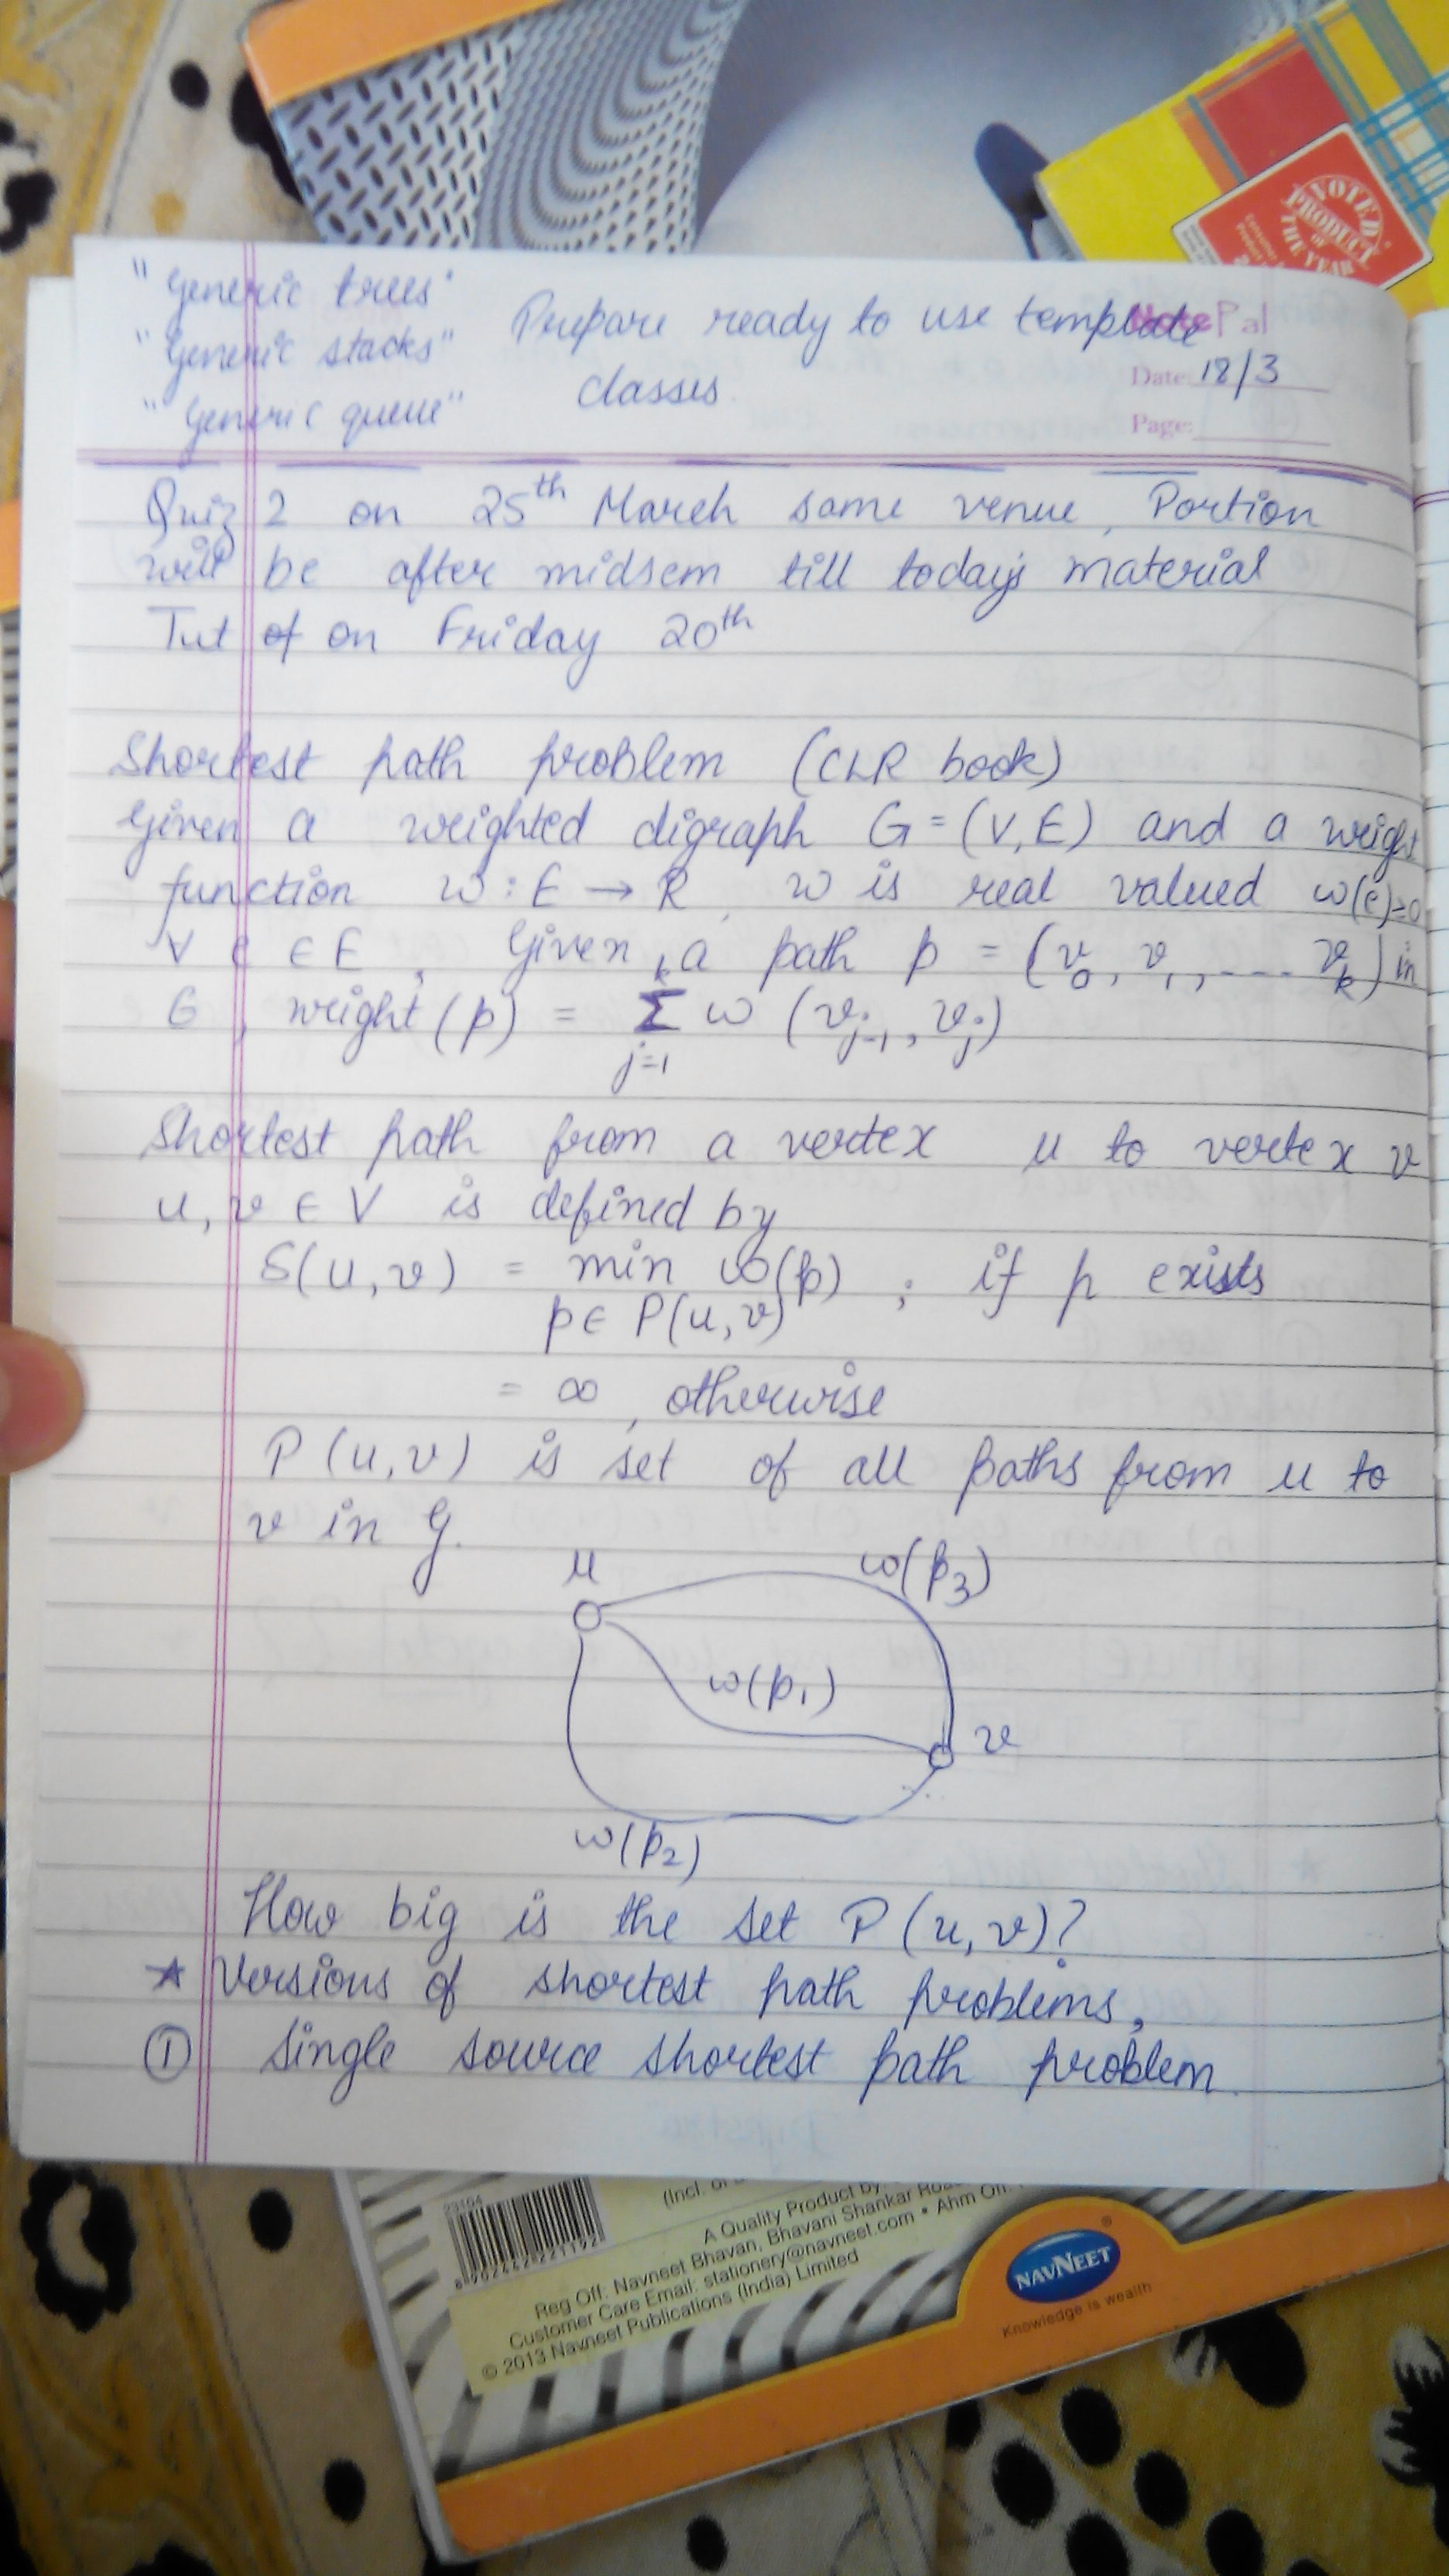 VOTED
PRODUCT
OF
THE YEAR
"Generic trees"
"Generic stacks"
"Generic queue"
Prepare ready to use template
classes.
NotePal
Date: 18/3
Page:
Quiz 2 on 25th March same venue, Portion
will be after midsem till today's material
Tut of on Friday 20th
Shortest path problem (CLR book)
Given a weighted digraph G = (V, E) and a weight
function w : E → R, w is real valued w(e)≥0
∀ e ∈ E, Given a path p = (v0, v1, .... vk) in
G, weight(p) = k Σ j=1 w (vj-1, vj)
Shortest path from a vertex u to vertex v
u, v ∈ V is defined by
δ(u, v) = min w(p) ; if p exists
p ∈ P(u, v)
= ∞, otherwise
P(u, v) is set of all paths from u to
v in G.
u
w(p3)
w(p1)
v
w(p2)
How big is the set P(u, v)?
* Versions of shortest path problems,
① Single source shortest path problem.
23104
8902442221192
(Incl. of
A Quality Product by
Reg Off: Navneet Bhavan, Bhavani Shankar
Customer Care Email: stationery@navneet.com • Ahm Off.
© 2013 Navneet Publications (India) Limited
NAVNEET
Knowledge is wealth